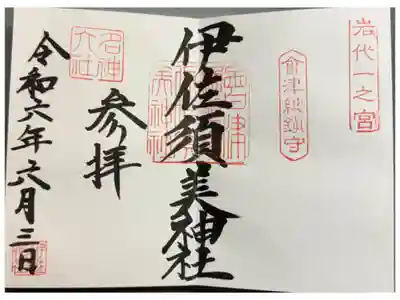 岩代一之宮
會津総鎮守
伊佐須美神社
名神
大社
参拝
令和六年六月三日